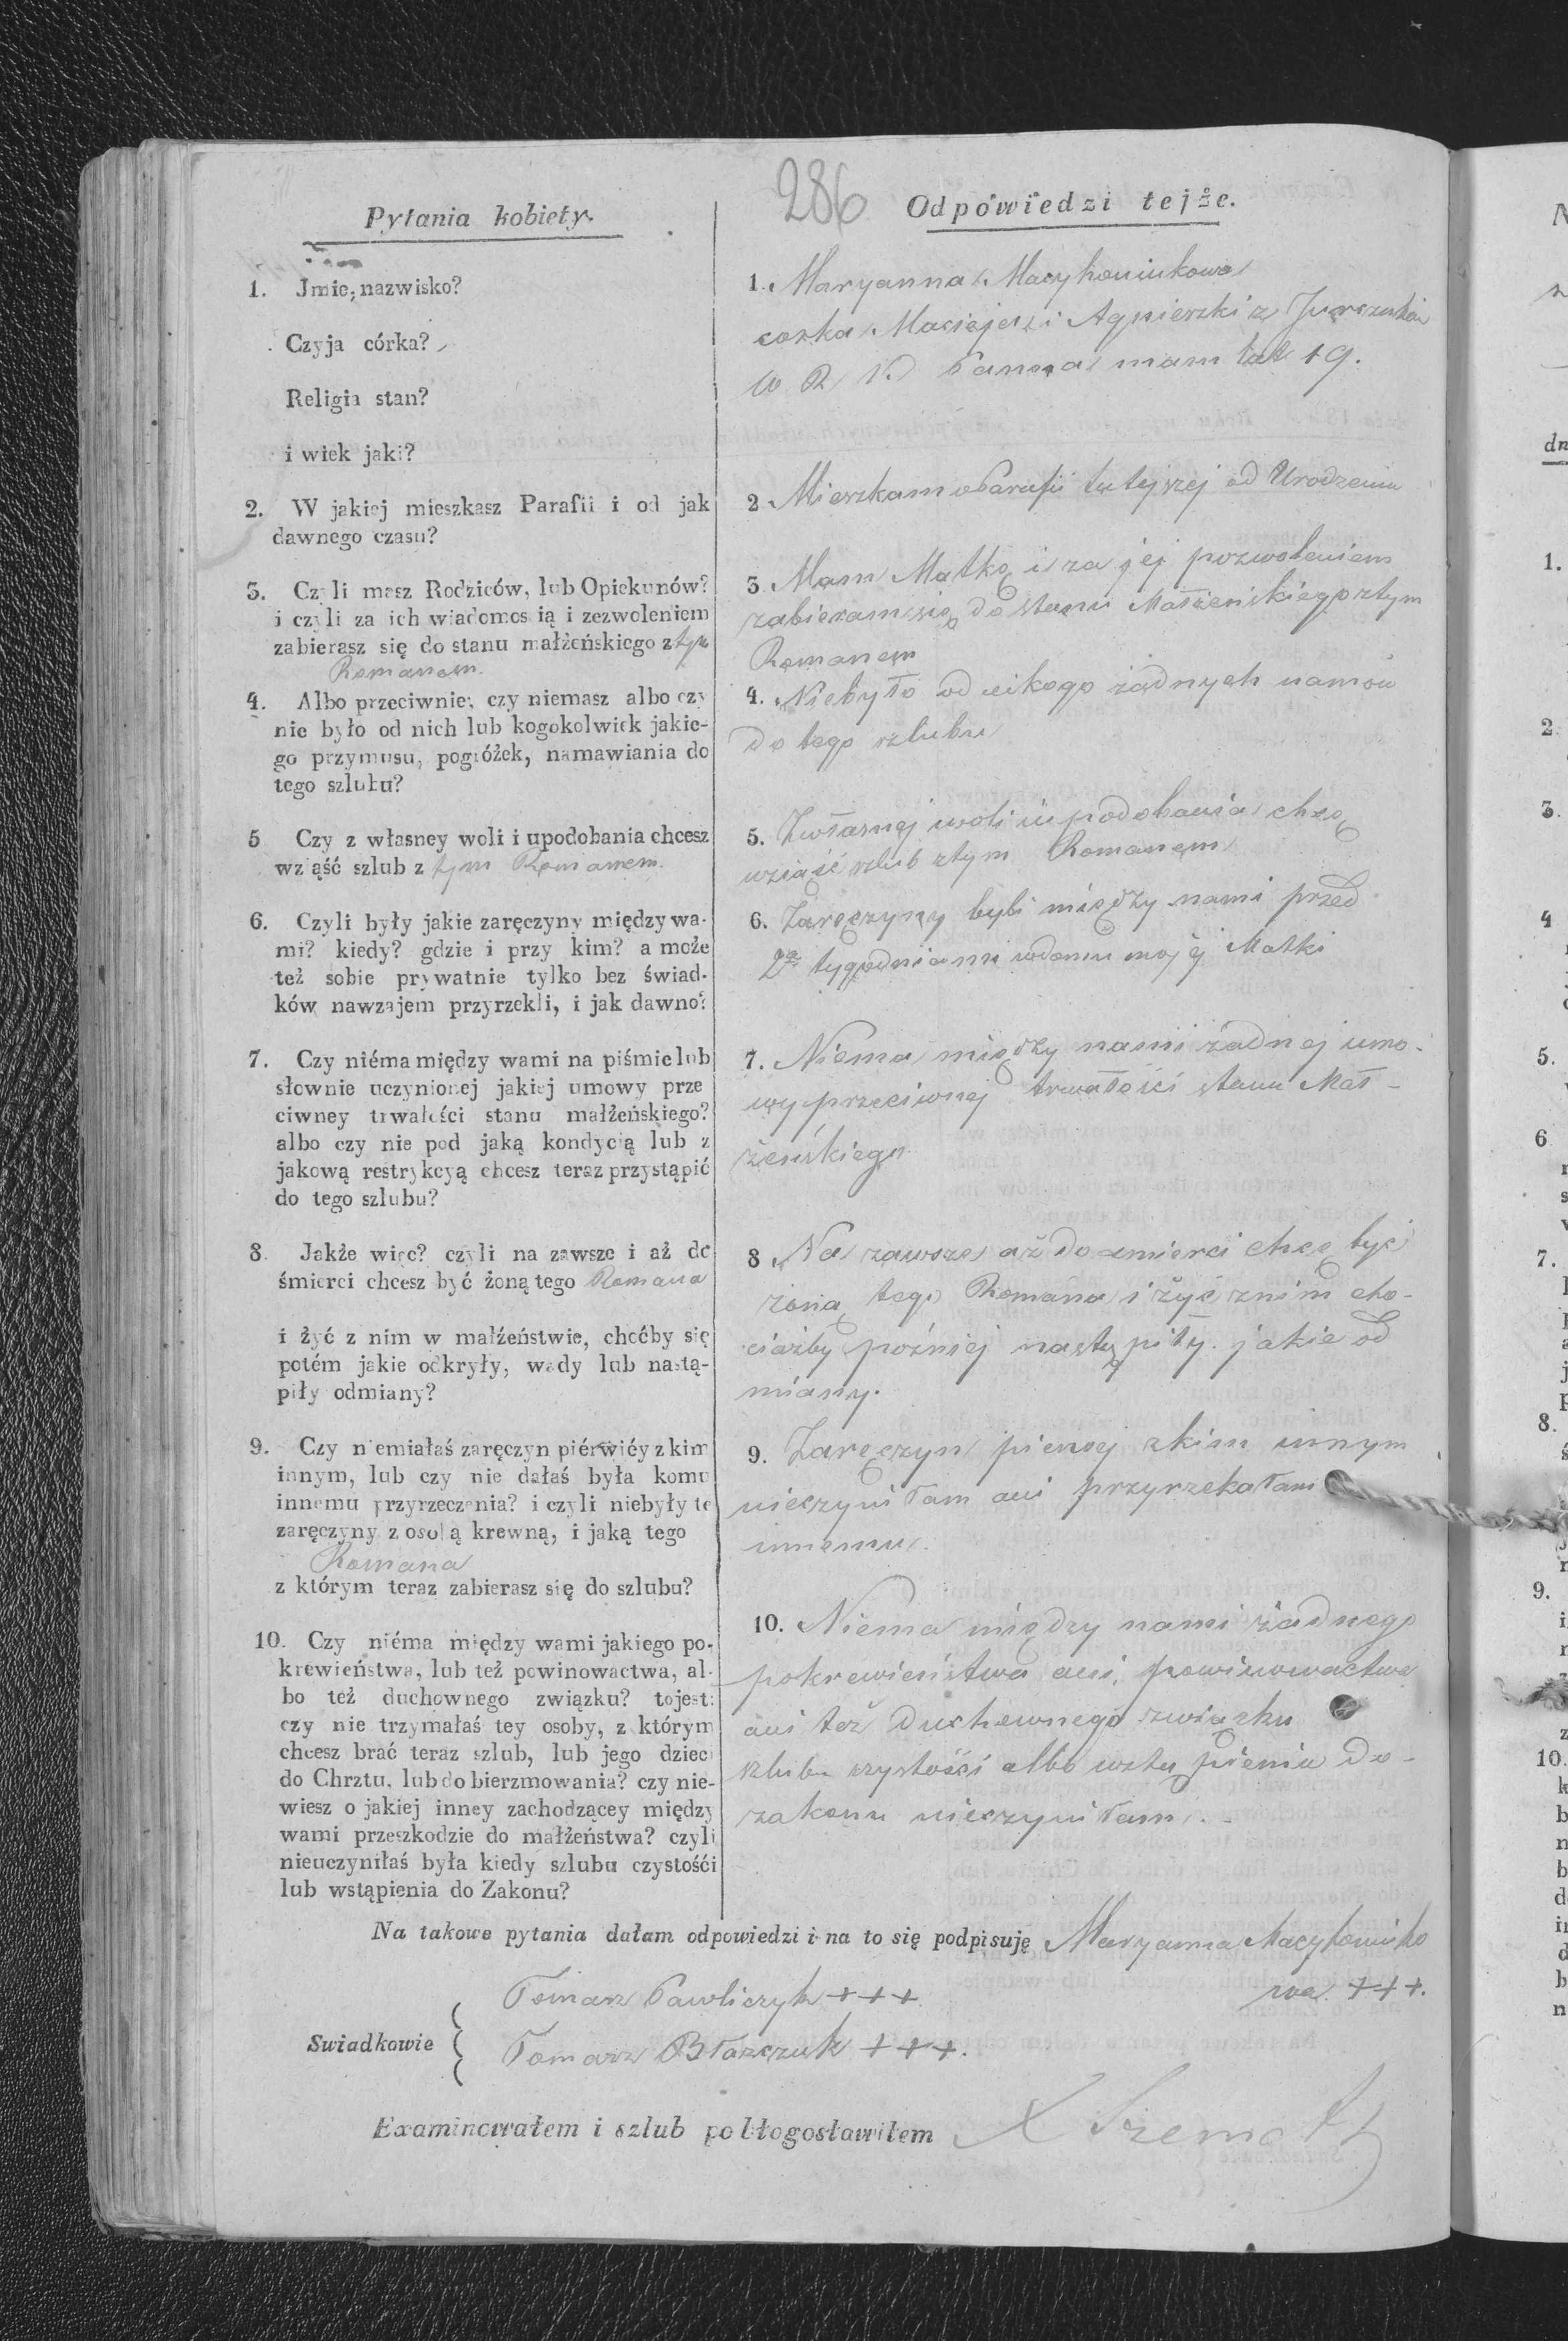 286
Pytania kobiety.
1. Jmie, nazwisko?
Czyja córka?
Religia stan?
i wiek jaki?
2. W jakiej mieszkasz Parafii i od jak
dawnego czasu?
3. Czyli masz Rodziców, lub Opiekunów?
i czyli za ich wiadomością i zezwoleniem
zabierasz się do stanu małżeńskiego z tym
Romanem.
4. Albo przeciwnie; czy niemasz albo czy
nie było od nich lub kogokolwiek jakie-
go przymusu, pogróżek, namawiania do
tego szlubu?
5 Czy z własney woli i upodobania chcesz
wziąść szlub z tym Romanem.
6. Czyli były jakie zaręczyny między wa-
mi? kiedy? gdzie i przy kim? a może
też sobie prywatnie tylko bez świad-
ków nawzajem przyrzekli, i jak dawno?
7. Czy niéma między wami na piśmie lub
słownie uczynionej jakiej umowy prze
ciwney trwałości stanu małżeńskiego?
albo czy nie pod jaką kondycią lub z
jakową restrykcyą chcesz teraz przystąpić
do tego szlubu?
8. Jakże więc? czyli na zawsze i aż do
śmierci chcesz być żoną tego Romana
i żyć z nim w małżeństwie, choćby się
potém jakie odkryły, wady lub nastą-
piły odmiany?
9. Czy niemiałaś zaręczyn piérwićy z kim
innym, lub czy nie dałaś była komu
innemu przyrzeczenia? i czyli niebyły te
zaręczyny z osobą krewną, i jaką tego
Romana
z którym teraz zabierasz się do szlubu?
10. Czy niéma między wami jakiego po-
krewieństwa, lub też powinowactwa, al-
bo też duchownego związku? tojest:
czy nie trzymałaś tey osoby, z którym
chcesz brać teraz szlub, lub jego dzieci
do Chrztu, lub do bierzmowania? czy nie-
wiesz o jakiej inney zachodzącey między
wami przeszkodzie do małżeństwa? czyli
nieuczyniłaś była kiedy szlubu czystośći
lub wstąpienia do Zakonu?
Odpowiedzi tejże.
1. Maryanna
corka Macieja i Agnieszki z
W R K Panna mam lat 19.
2 Mieszkam w Parafii tutejszej od Urodzenia
3 Mam Matkę i za jej pozwoleniem
zabieram się do stanu Małżeńskiego ztym
Romanem
4. Niebyło od nikogo żadnych namow
do tego szlubu
5. Zwłasnej woli i upodobania chcę
wziąść szlub ztym Romanem
6. Zaręczyny byli między nami przed
2ma tygodniami wdomu mojej Matki
7. Niema między nami żadnej umo-
wy przeciwnej trwałości stanu Mał-
żeńskiego
8 Na zawsze aż do smierci chcę być
żoną tego Romana i żyć znim cho-
ciażby poźniej nastąpiły jakie od
miany.
9. Zaręczyn pierwej zkim innym
nieczyniłam ani przyrzekałam
innemu.
10. Niema między nami żadnego
pokrewieństwa ani powinowactwa
ani też duchownego związku
szlubu czystości albo wstąpienia do-
zakonu nieczyniłam.
Na takowe pytania dałam odpowiedzi i na to się podpisuję Maryanna
wa +++.
Swiadkowie
Tomasz Pawliczyk +++
Tomasz Błaszczuk +++.
Examinowałem i szlub pobłogosławiłem X
dn
1.
2.
3.
4
5.
6.
7.
8.
9.
10.